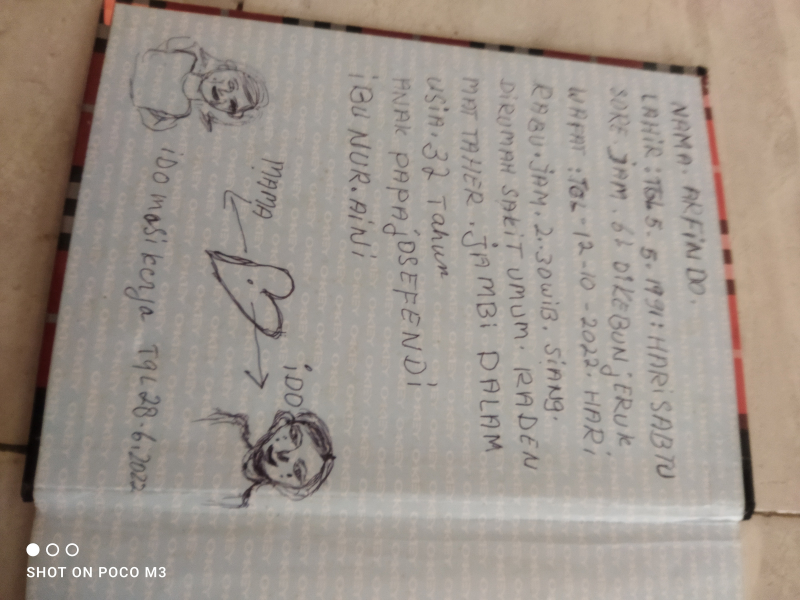 NAMA. ARFINDO.
LAHIR : TGL 5. 5. 1991 : HARI SABTU
SORE JAM. 6 DIKEBUN JERUK
WAFAT : TGL - 12 - 10 - 2022. HARI
RABU. JAM. 2.30 WIB. SIANG.
DIRUMAH SAKIT UMUM. RADEN
MATTAHER. JAMBI DALAM
USIA. 32 Tahun
ANAK PAPA JOSEFENDI
IBU NUR. AINI
MAMA
IDO
IDO masi kerja TgL 28. 6. 2022
SHOT ON POCO M3